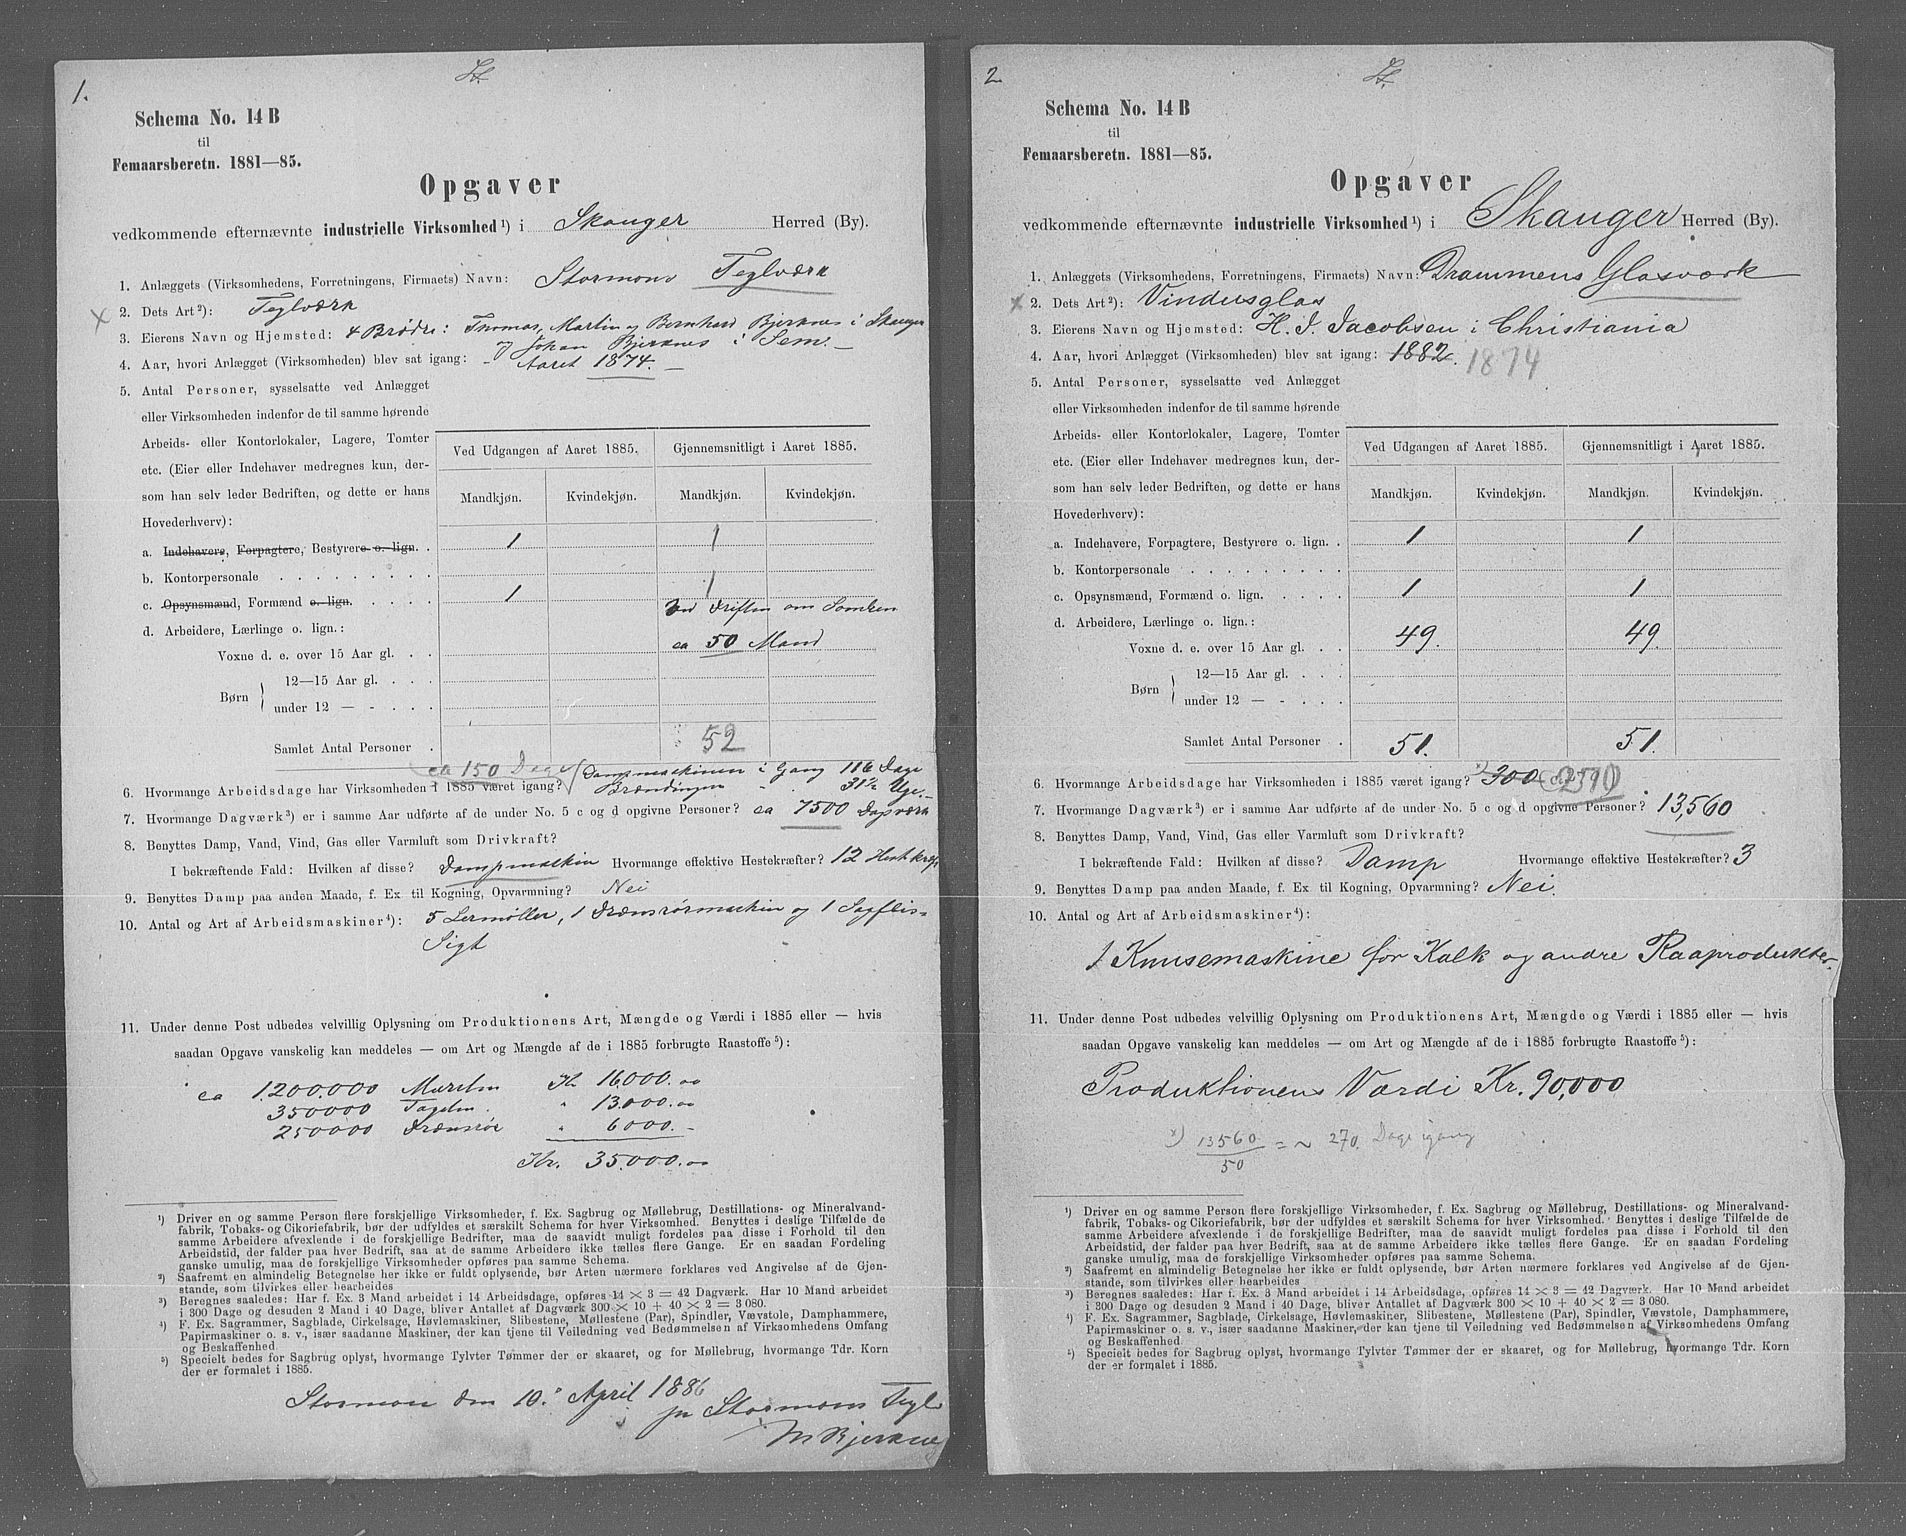 1.
Schema No. 14 B
til
Femaarsberetn. 1881—85.
Opgaver
vedkommende efternævnte industrielle Virksomhed ¹) i Skouger Herred (By).
1. Anlæggets (Virksomhedens, Forretningens, Firmaets) Navn: Stormons Teglværk
2. Dets Art ²): Teglværk
3. Eierens Navn og Hjemsted: 4 Brødre: Thomas, Martin og Bernhard Bjerknes i Skouger
Johan Bjerknes i Sem. —
4. Aar, hvori Anlægget (Virksomheden) blev sat igang: - Aaret 1874. —
5. Antal Personer, sysselsatte ved Anlægget
eller Virksomheden indenfor de til samme hørende
Arbeids- eller Kontorlokaler, Lagere, Tomter
etc. (Eier eller Indehaver medregnes kun, der-
som han selv leder Bedriften, og dette er hans
Hovederhverv):
Ved Udgangen af Aaret 1885. Gjennemsnitligt i Aaret 1885.
Mandkjøn. Kvindekjøn. Mandkjøn. Kvindekjøn.
a. Indehavere, Forpagtere, Bestyrere o. lign. . 1 1
b. Kontorpersonale . . . . . . . . . 1
c. Opsynsmænd, Formænd o. lign. . . . . 1
ved Driften om Somren
d. Arbeidere, Lærlinge o. lign.:
ca 50 Mand
Voxne d. e. over 15 Aar gl. . .
Børn
12—15 Aar gl. . . .
under 12 — - . . .
Samlet Antal Personer . 52
ca 150 Dage Dampmaskinen i Gang 116 Dage
6. Hvormange Arbeidsdage har Virksomheden i 1885 været igang? Brændingen " 31½ Uge. —
7. Hvormange Dagværk ³) er i samme Aar udførte af de under No. 5 c og d opgivne Personer? ca 7500 Dagværk
8. Benyttes Damp, Vand, Vind, Gas eller Varmluft som Drivkraft?
I bekræftende Fald: Hvilken af disse? Dampmaskin Hvormange effektive Hestekræfter? 12 Hestkrft
9. Benyttes Damp paa anden Maade, f. Ex til Kogning, Opvarmning? Nei
10. Antal og Art af Arbeidsmaskiner ⁴): 5 Lermøller, 1 Drænsrørmaskin og 1 Sagflis-
Sigt
11. Under denne Post udbedes velvillig Oplysning om Produktionens Art, Mængde og Værdi i 1885 eller — hvis
saadan Opgave vanskelig kan meddeles — om Art og Mængde af de i 1885 forbrugte Raastoffe ⁵):
ca 1.200.000 Mursten Kr 16.000.00
350000 Tagsten " 13.000.00
250000 Drænsrør " 6000. —
Kr. 35.000.00
¹) Driver en og samme Person flere forskjellige Virksomheder, f. Ex. Sagbrug og Møllebrug, Destillations- og Mineralvand-
fabrik, Tobaks- og Cikoriefabrik, bør der udfyldes et særskilt Schema for hver Virksomhed. Benyttes i deslige Tilfælde de
samme Arbeidere afvexlende i de forskjellige Bedrifter, maa de saavidt muligt fordeles paa disse i Forhold til den
Arbeidstid, der falder paa hver Bedrift, saa at de samme Arbeidere ikke tælles flere Gange. Er en saadan Fordeling
ganske umulig, maa de forskjellige Virksomheder opføres paa samme Schema.
²) Saafremt en almindelig Betegnelse her ikke er fuldt oplysende, bør Arten nærmere forklares ved Angivelse af de Gjen-
stande, som tilvirkes eller bearbeides
³) Beregnes saaledes: Har f. Ex. 3 Mand arbeidet i 14 Arbeidsdage, opføres 14 × 3 = 42 Dagværk. Har 10 Mand arbeidet
i 300 Dage og desuden 2 Mand i 40 Dage, bliver Antallet af Dagværk 300 × 10 + 40 × 2 = 3 080.
⁴) F. Ex. Sagrammer, Sagblade, Cirkelsage, Høvlemaskiner, Slibestene, Møllestene (Par), Spindler, Vævstole, Damphammere,
Papirmaskiner o. s. v., især saadanne Maskiner, der kan tjene til Veiledning ved Bedømmelsen af Virksomhedens Omfang
og Beskaffenhed
⁵) Specielt bedes for Sagbrug oplyst, hvormange Tylvter Tømmer der er skaaret, og for Møllebrug, hvormange Tdr. Korn
der er formalet i 1885.
Stormon den 10. April 1886
pr Stormons Tegl.
M Bjerknes
2.
Schema No. 14 B
til
Femaarsberetn. 1881—85.
Opgaver
vedkommende efternævnte industrielle Virksomhed ¹) i Skauger Herred (By).
1. Anlæggets (Virksomhedens, Forretningens, Firmaets) Navn: Drammens Glasværk
2. Dets Art ²): Vindusglas
3. Eierens Navn og Hjemsted: H. J. Jacobsen i Christiania
4. Aar, hvori Anlægget (Virksomheden) blev sat igang: 1882. 1874
5. Antal Personer, sysselsatte ved Anlægget
eller Virksomheden indenfor de til samme hørende
Arbeids- eller Kontorlokaler, Lagere, Tomter
etc. (Eier eller Indehaver medregnes kun, der-
som han selv leder Bedriften, og dette er hans
Hovederhverv):
Ved Udgangen af Aaret 1885. Gjennemsnitligt i Aaret 1885.
Mandkjøn. Kvindekjøn. Mandkjøn. Kvindekjøn.
a. Indehavere, Forpagtere, Bestyrere o. lign. . 1 1
b. Kontorpersonale . . . . . . . . .
c. Opsynsmænd, Formænd o. lign. . . . . 1 1
d. Arbeidere, Lærlinge o. lign.:
Voxne d. e. over 15 Aar gl. . . 49. 49.
Børn
12—15 Aar gl. . . .
under 12 — - . . .
Samlet Antal Personer . 51. 51.
6. Hvormange Arbeidsdage har Virksomheden i 1885 været igang? ˣ) 300
7. Hvormange Dagværk ³) er i samme Aar udførte af de under No. 5 c og d opgivne Personer? 13,560
8. Benyttes Damp, Vand, Vind, Gas eller Varmluft som Drivkraft?
I bekræftende Fald: Hvilken af disse? Damp Hvormange effektive Hestekræfter? 3
9. Benyttes Damp paa anden Maade, f. Ex til Kogning, Opvarmning? Nei.
10. Antal og Art af Arbeidsmaskiner ⁴):
1 Knusemaskine for Kalk og andre Raaprodukter.
11. Under denne Post udbedes velvillig Oplysning om Produktionens Art, Mængde og Værdi i 1885 eller — hvis
saadan Opgave vanskelig kan meddeles — om Art og Mængde af de i 1885 forbrugte Raastoffe ⁵):
Produktionens Værdi Kr. 90,000
ˣ) 13560/50 = ~ 270. Dage igang
¹) Driver en og samme Person flere forskjellige Virksomheder, f. Ex. Sagbrug og Møllebrug, Destillations- og Mineralvand-
fabrik, Tobaks- og Cikoriefabrik, bør der udfyldes et særskilt Schema for hver Virksomhed. Benyttes i deslige Tilfælde de
samme Arbeidere afvexlende i de forskjellige Bedrifter, maa de saavidt muligt fordeles paa disse i Forhold til den
Arbeidstid, der falder paa hver Bedrift, saa at de samme Arbeidere ikke tælles flere Gange. Er en saadan Fordeling
ganske umulig, maa de forskjellige Virksomheder opføres paa samme Schema.
²) Saafremt en almindelig Betegnelse her ikke er fuldt oplysende, bør Arten nærmere forklares ved Angivelse af de Gjen-
stande, som tilvirkes eller bearbeides
³) Beregnes saaledes: Har f. Ex. 3 Mand arbeidet i 14 Arbeidsdage, opføres 14 × 3 = 42 Dagværk. Har 10 Mand arbeidet
i 300 Dage og desuden 2 Mand i 40 Dage, bliver Antallet af Dagværk 300 × 10 + 40 × 2 = 3 080.
⁴) F. Ex. Sagrammer, Sagblade, Cirkelsage, Høvlemaskiner, Slibestene, Møllestene (Par), Spindler, Vævstole, Damphammere,
Papirmaskiner o. s. v., især saadanne Maskiner, der kan tjene til Veiledning ved Bedømmelsen af Virksomhedens Omfang
og Beskaffenhed
⁵) Specielt bedes for Sagbrug oplyst, hvormange Tylvter Tømmer der er skaaret, og for Møllebrug, hvormange Tdr. Korn
der er formalet i 1885.